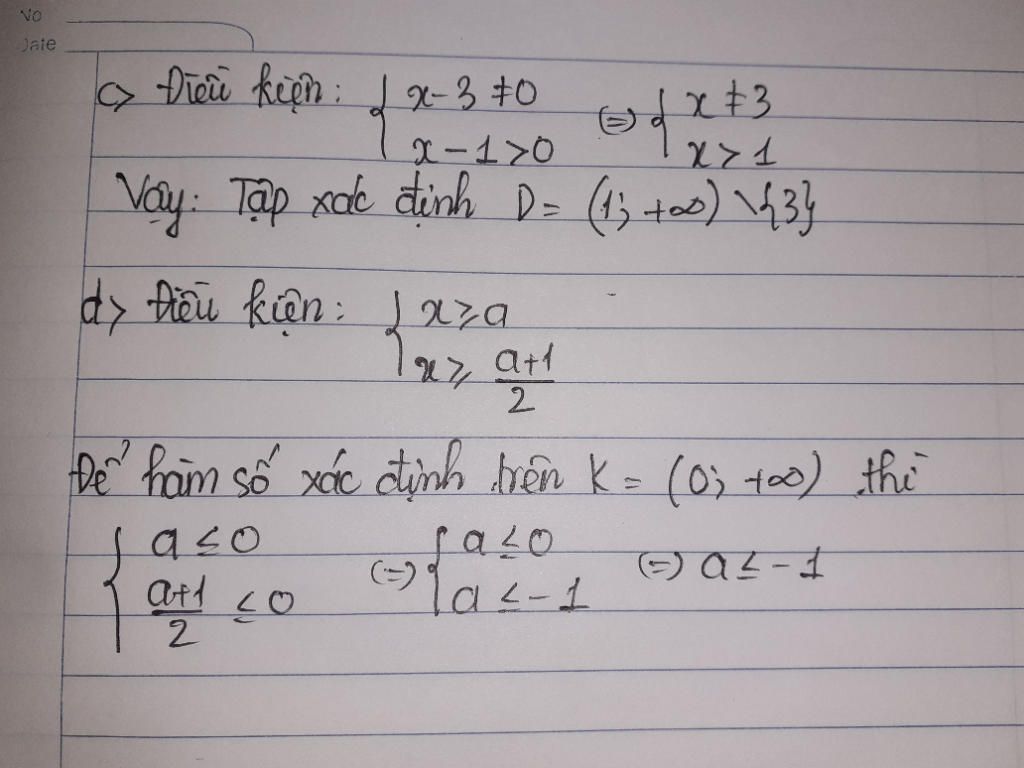 No
Date
c> Điều kiện: { x - 3 ≠ 0 (=) { x ≠ 3
x - 1 > 0 x > 1
Vậy: Tập xác định D = (1; +∞) \ {3}
d> Điều kiện: { x ≥ a
x ≥ (a+1)/2
Để hàm số xác định trên K = (0; +∞) thì
{ a ≤ 0 (=) { a ≤ 0 (=) a ≤ -1
(a+1)/2 ≤ 0 a ≤ -1